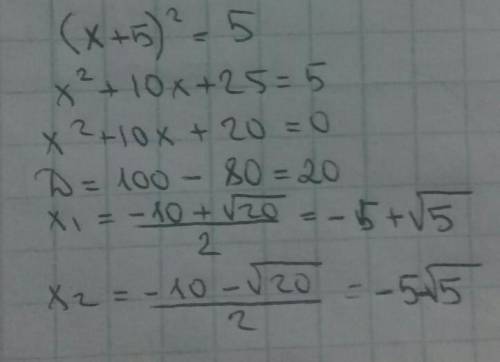 (x+5)² = 5
x² + 10x + 25 = 5
x² + 10x + 20 = 0
D = 100 - 80 = 20
x₁ = (-10 + √20)/2 = -5 + √5
x₂ = (-10 - √20)/2 = -5-√5